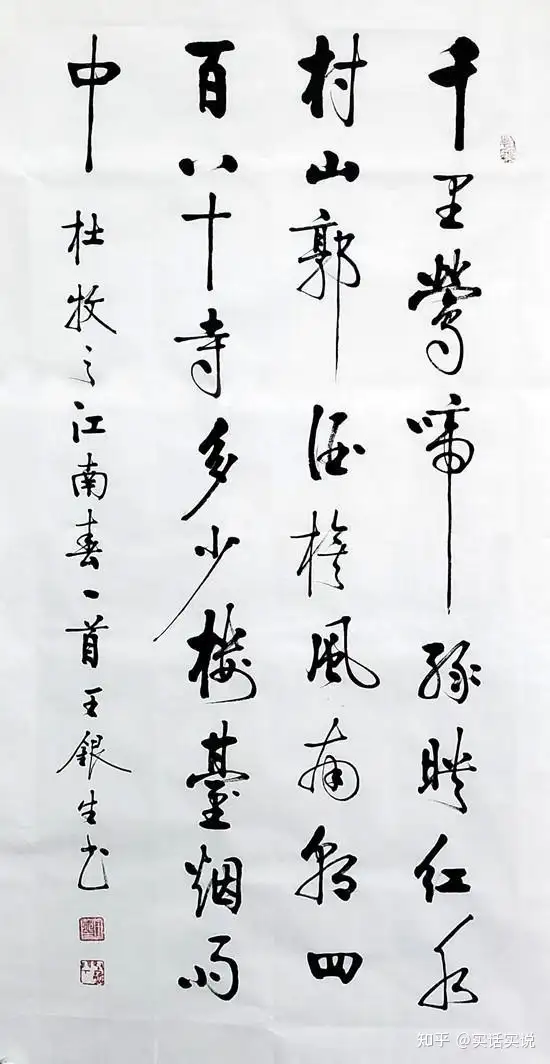 千里鶯啼綠暎紅水
村山郭酒旗風南朝四
百八十寺多少樓臺烟雨
中 杜牧之江南春一首王銀生书
知乎 @实话实说